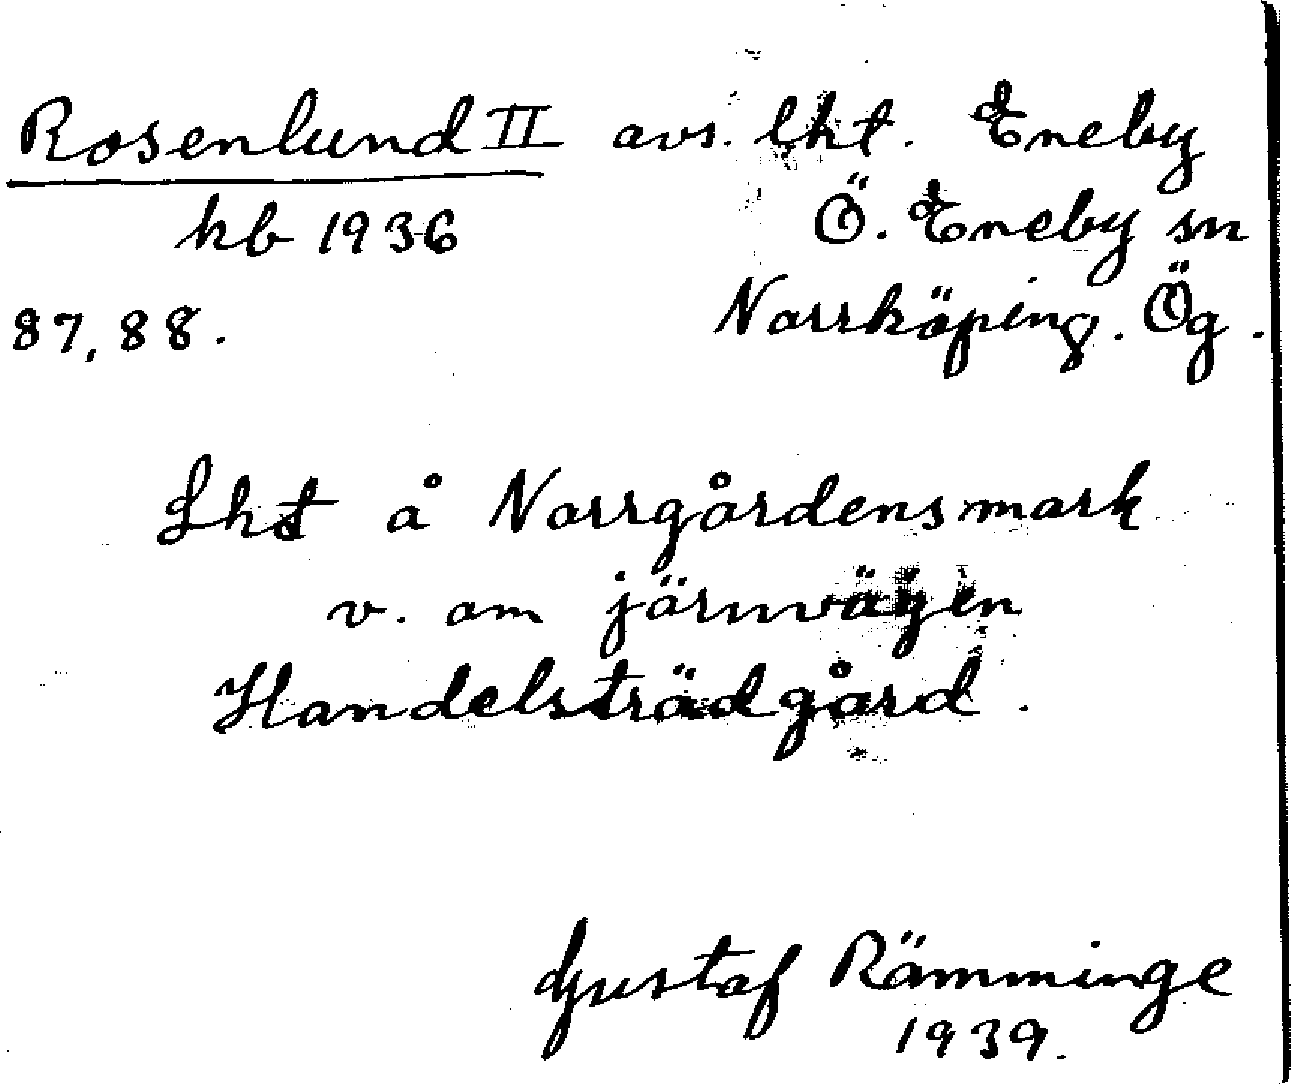 Rosenlund II avs. lht. Eneby
hb 1936 Ö. Eneby sn
87, 88. Norrköping. Ög.
Lht å Norrgårdensmark
v. om järnvägen
Handelsträdgård.
Gustaf Rämminge
1939.